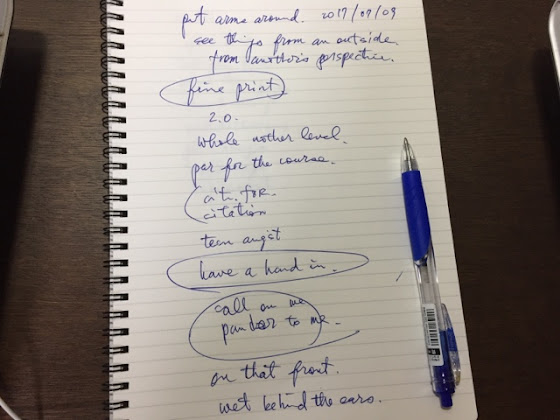 put arms around. 2017/07/09
see things from an outside.
from another's perspective.
fine print
2.0.
whole nother level.
par for the course.
cit. for
citation
teen angst
have a hand in.
call on me
pander to me.
on that front.
wet behind the ears.